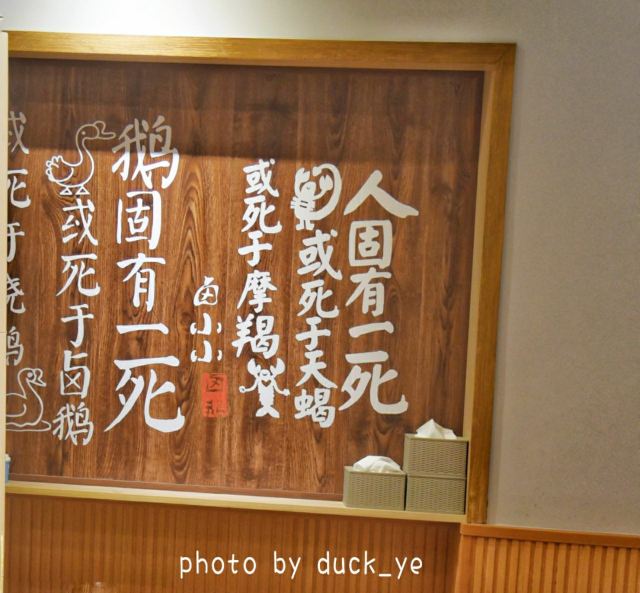 人固有一死
或死于天蝎
或死于摩羯
卤小小
鹅固有一死
或死于卤鹅
或死于烧鹅
photo by duck_ye